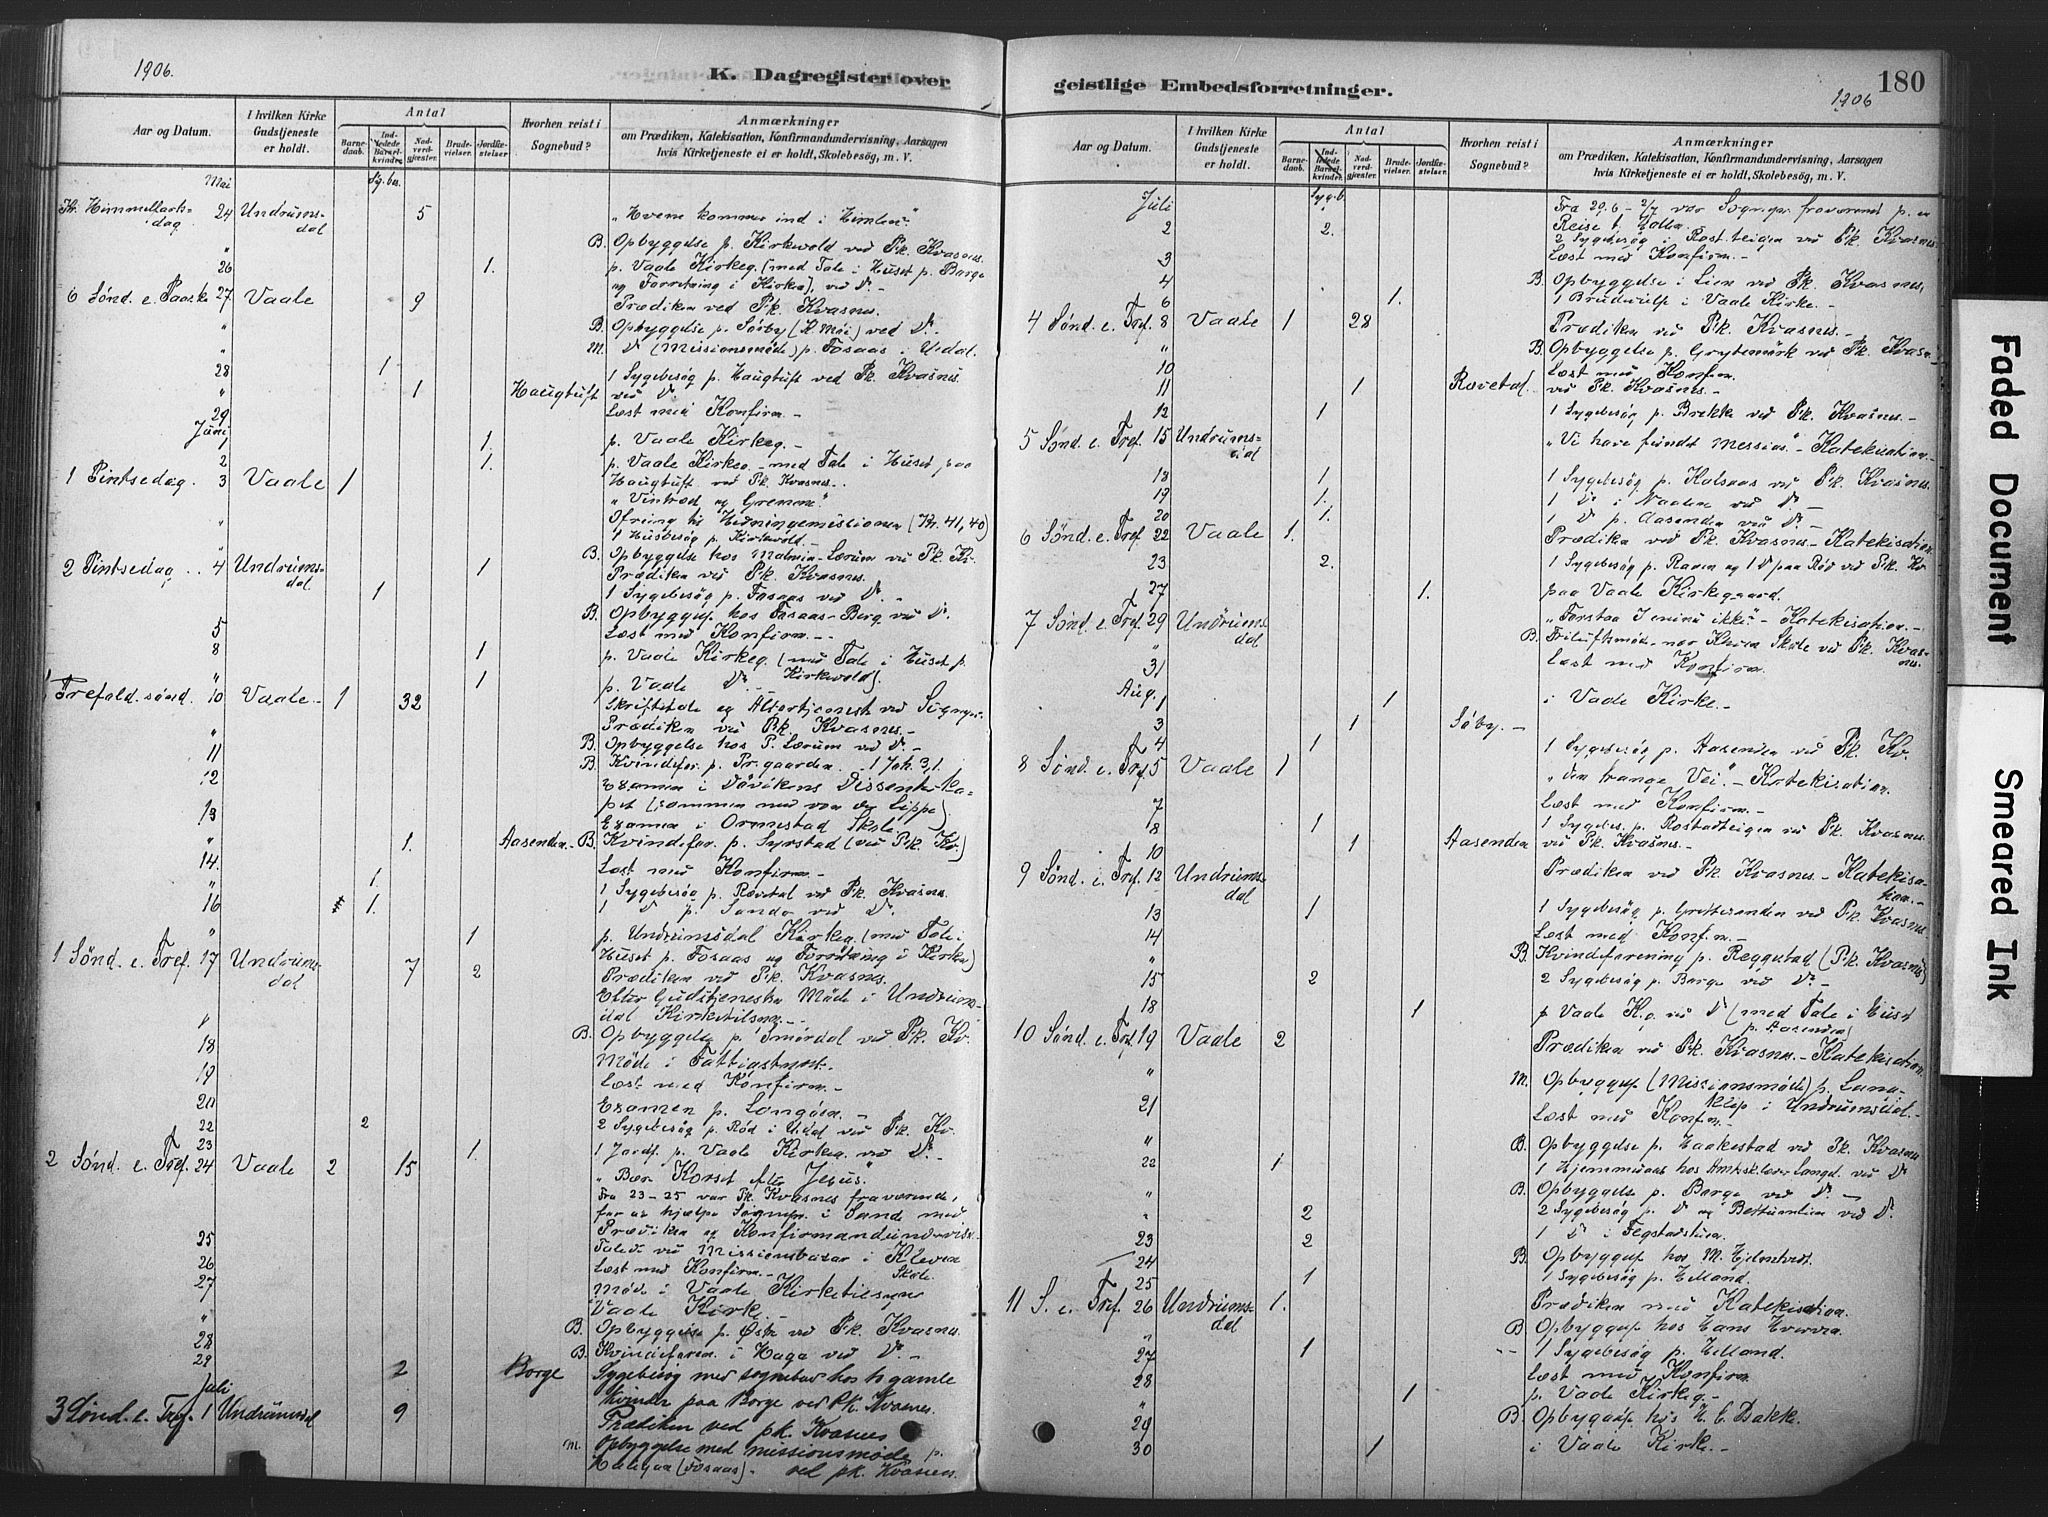 1906.
K. Dagregister over
Aar og Datum.
I hvilken Kirke Gudstjeneste er holdt.
Antal
Barnedaab.
Indledede Barselkvinder.
Nadverdgjæster.
Brudevielser.
Jordfæstelser.
Hvorhen reist i Sognebud?
Anmærkninger
om Prædiken, Katekisation, Konfirmandundervisning, Aarsagen
hvis Kirketjeneste ei er holdt, Skolebesøg, m. V.
Mai
Sg. bes.
Kr. Himmelfarts- 24 Undrums- 5 "Hvem kommer ind i Himlen."
dag dal
" B. Opbyggelse p. Kirkevold ved Pk. Kvasnes.
26 1. p. Vaale Kirkeg. (med Tale i Huset p. Borge
og Forretning i Kirken), ved Do. -
6 Sønd. e. Paaske 27 Vaale 9 Prædiken ved Pk. Kvasnes.
" B. Opbyggelse p. Sørby ved Do.
" M. Do (Missionsmøde) p. Fosaas i Udal.
28 1 1 Sygebesøg p. Haugtuft ved Pk. Kvasnes.
" 1 Haugtuft ved Do.
29 Læst med Konfirm. -
Juni
1 1. p. Vaale Kirkeg. -
2 1. p. Vaale Kirkeg. med Tale i Huset paa
Haugtuft ved Pk. Kvasnes.
1 Pintsedag. 3 Vaale 1 "Vintræd og Grenene."
Ofring til Hedningemissionen (Kr. 41,40)
" 1 Husbesøg p. Kirkevold. -
B. Opbyggelse hos Lærum ved Pk. Kv.
2 Pintsedag .. 4 Undrums- 1 Prædiken ved Pk. Kvasnes.
dal 1 1 Sygebesøg p. Fosaas ved Do. -
B. Opbyggels hos Fosaas-Berg ved Do.
5 Læst med Konfirm. -
8 1 p. Vaale Kirkeg. (med Tale i Huset p.
Kirkevold).
" 1 p. Vaale Do.
Trefold. sønd. 10 Vaale 1 32 Skriftetale og Altertjenest ved Sognepr.
Prædiken ved Pk. Kvasnes. -
" B. Opbyggelse hos P. Lærum ved Do. -
11 B. Kvindefor. p. Pr.gaarden - 1 Joh. 3,1.
12 Examen i Døvikens Dissenterka-
pet (sammen med von der Lippe)
13 Examen i Ormestad Skole
" 1. Aasenden B. Kvindefor. p. Syrstad (ved Pk. Kv.)
14. Læst med Konfirm. -
" 1. 1 Sygebesøg p. Røvetal ved Pk. Kvasnes.
16 1. 1 Do p. Sando ved Do.
" 1 p. Undrumsdal Kirkeg. (med Tale i
Huset p. Fosaas og Forretning i Kirken)
1 Sønd. e. Tref. 17 Undrums- 7 2 Prædiken ved Pk. Kvasnes.
dal Efter Gudstjenesten Møde i Undrums-
dal Kirketilsyn. -
" B. Opbyggelse p. Smørdal ved Pk. Kv.
18 Møde i Fattigstyret.
19 Læst med Konfirm. -
20 Examen p. Langøen. -
22 2 2 Sygebesøg p. Rød i Udal ved Pk. Kv.
23 1. 1 Jordf. p. Vaale Kirkeg. ved Do. -
2 Sønd. e. Tref. 24 Vaale 2 15 "Bær Korset efter Jesus."
Fra 23-25 var Pk. Kvasnes fraværende,
for at hjælpe Sognepr. i Sande med
Prædiken og Konfirmandundervisn.
25 Talede ved Missionsbasar i Kleven
Skole.
26 Læst med Konfirm. -
27 Møde i Vaale Kirketilsyn
Vaale Kirke.
" B. Opbyggelse p. Østre ved Pk. Kvasnes.
28 B. Kvindeforen. i Haga ved Do. -
29 2 Borge Sygebesøg med sognebud hos to gamle
Kvinder paa Borge ved Pk. Kvasnes.
Juli
3 Sønd. e. Tref. 1 Undrumsdal 9 Prædiken ved pk. Kvasnes
m. Opbyggelse med missionsmøde p.
(Fosaas). ved pk. Kvasnes.
geistlige Embedsforretninger.
180
1906
Aar og Datum.
I hvilken Kirke Gudstjeneste er holdt.
Antal
Barnedaab.
Indledede Barselkvinder.
Nadverdgjæster.
Brudevielser.
Jordfæstelser.
Hvorhen reist i Sognebud?
Anmærkninger
om Prædiken, Katekisation, Konfirmandundervisning, Aarsagen
hvis Kirketjeneste ei er holdt, Skolebesøg, m. V.
Juli
Syg.b.
Fra 29.6 - 2/7 var Sogn.pr. fraværend p. en
Reise t. Holla.
2 2. 2 Sygebesøg i Rostteigen ved Pk. Kvasnes.
3 Læst med Konfirm. -
4 B. Opbyggelse i Lien ved Pk. Kvasnes.
6 1. 1 Brudevielse i Vaale Kirke. -
4 Sønd. e. Tref. 8 Vaale 1 28 Prædiken ved Pk. Kvasnes. -
" B. Opbyggelse p. Grytemork ved Pk. Kvasn.
10 Læst med Konfirm.
11 1 Røvetal. ved Pk. Kvasnes. -
12 1 1 Sygebesøg p. Brekke ved Pk. Kvasnes. -
5 Sønd. e. Tref. 15 Undrums- "Vi have fundet Messias" - Katekisation. -
dal
18 1 1 Sygebesøg p. Holsaas ved Pk. Kvasnes.
19 1. 1 Do i ved Do. -
20 1. 1 Do p. Aasenden ved Do. -
6 Sønd. e. Tref. 22 Vaale 1. Prædiken ved Pk. Kvasnes - Katekisation.
23 2. 1 Sygebesøg p. Raaen og 1 Do paa Rød ved Pk. Kv.
27 1. paa Vaale Kirkegaard.
7 Sønd. e. Tref. 29 Undrums- "Forstaa I endnu ikke" - Katekisation. -
dal
" B. Friluftsmøde nær Skole ved Pk. Kvas-
nes.
31 Læst med Konfirm.
Aug. 1 1 i Vaale Kirke. -
3 1 Søby. -
4 1 1 Sygebesøg p. Aasenden ved Pk. Kv.
8 Sønd. e. Tref. 5 Vaale 1 "den trange Vei" - Katekisation.
7 Læst med Konfirm. -
8 1 1 Sygebes. p. Rostadteigen ved Pk. Kvasnes.
10 1 Aasenden ved Pk. Kvasnes. -
9 Sønd. e. Tref. 12 Undrums- Prædiken ved Pk. Kvasnes - Katekisa-
dal tion. -
13 1 1 Sygebesøg p. ved Pk. Kvasnes.
14 Læst med Konfirm. -
" B. Kvindeforening p. Reggestad (Pk. Kvasnes)
15 2 2 Sygebesøg p. Borge ved Do. -
18 1 p. Vaale K.g. ved Do (med Tale i Huset
p. Aasenden)
10 Sønd. e. Tref. 19 Vaale 2 Prædiken ved Pk. Kvasnes. - Katekisation.
" M. Opbyggels (Missionsmøde) p. Lang-
klep i Undrumsdal. -
21 Læst med Konfirm. -
" B. Opbyggelse p. Haakestad ved Pk. Kvasnes
22 1. 1 Hjemmedaab hos Langd. ved Do
" B. Opbyggelse p. Borge ved Do. -
" 2 2 Sygebesøg p. Do og ved Do.
23 2 1 Do i Fegstadstuen.
24 B. Opbyggels hos M. Hjelmtvedt.
25 1 1 Sygebesøg p. Holland.
11 S. e. Tref. 26 Undrums- 1. Prædiken med Katekisation.
dal
" B Opbyggels hos Hans
27 1 1 Sygebesøg p. Holland.
28 Læst med Konfirm.
" 1 p. Vaale Kirkeg. -
29 B. Opbyggels hos H. E. Bakk.
30 1 i Vaale Kirke. -
Faded Document
Smeared Ink